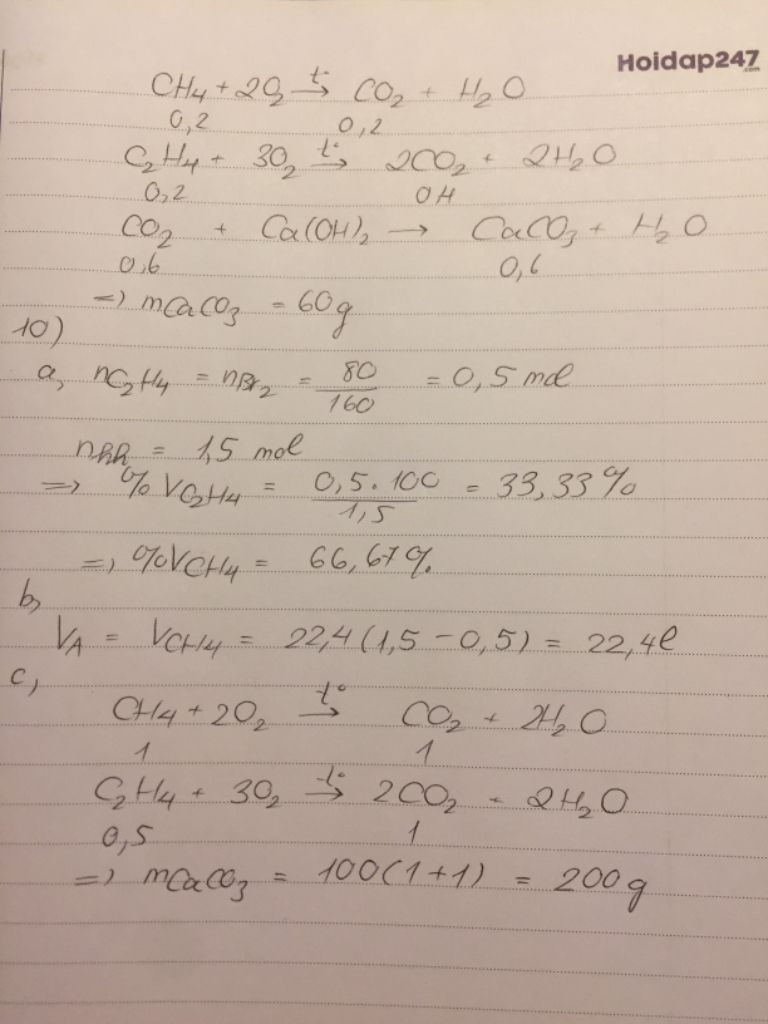 Hoidap247.com
CH4 + 2O2 t° → CO2 + H2O
0,2 0,2
C2H4 + 3O2 t° → 2CO2 + 2H2O
0,2 0H
CO2 + Ca(OH)2 → CaCO3 + H2O
0,6 0,6
=> mCaCO3 = 60g
10)
a, nC2H4 = nBr2 = 80/160 = 0,5 mol
nhh = 1,5 mol
=> %VC2H4 = 0,5.100/1,5 = 33,33%
=> %VCH4 = 66,67%.
b,
VA = VCH4 = 22,4(1,5 - 0,5) = 22,4l
c,
CH4 + 2O2 t° → CO2 + 2H2O
1 1
C2H4 + 3O2 t° → 2CO2 + 2H2O
0,5 1
=> mCaCO3 = 100(1+1) = 200g